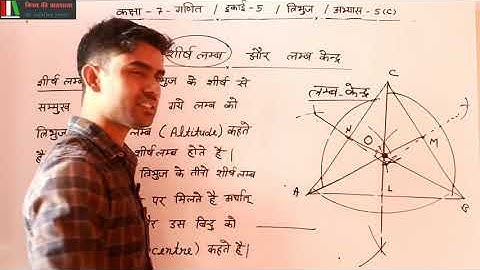 कक्षा - 7 - गणित / इकाई - 5 / त्रिभुज / अभ्यास - 5 (C)
शीर्ष लम्ब और लम्ब केन्द्र
शीर्ष लम्ब के शीर्ष से
सम्मुख गये लम्ब को
त्रिभुज लम्ब (Altitude) कहते
है शीर्षलम्ब होते है।
त्रिभुज के तीनो शीर्षलम्ब
पर मिलते है अर्थात्
और उस बिन्दु को
centre) कहते है।
लम्ब-केन्द्र
C
N
O
M
A
L
B